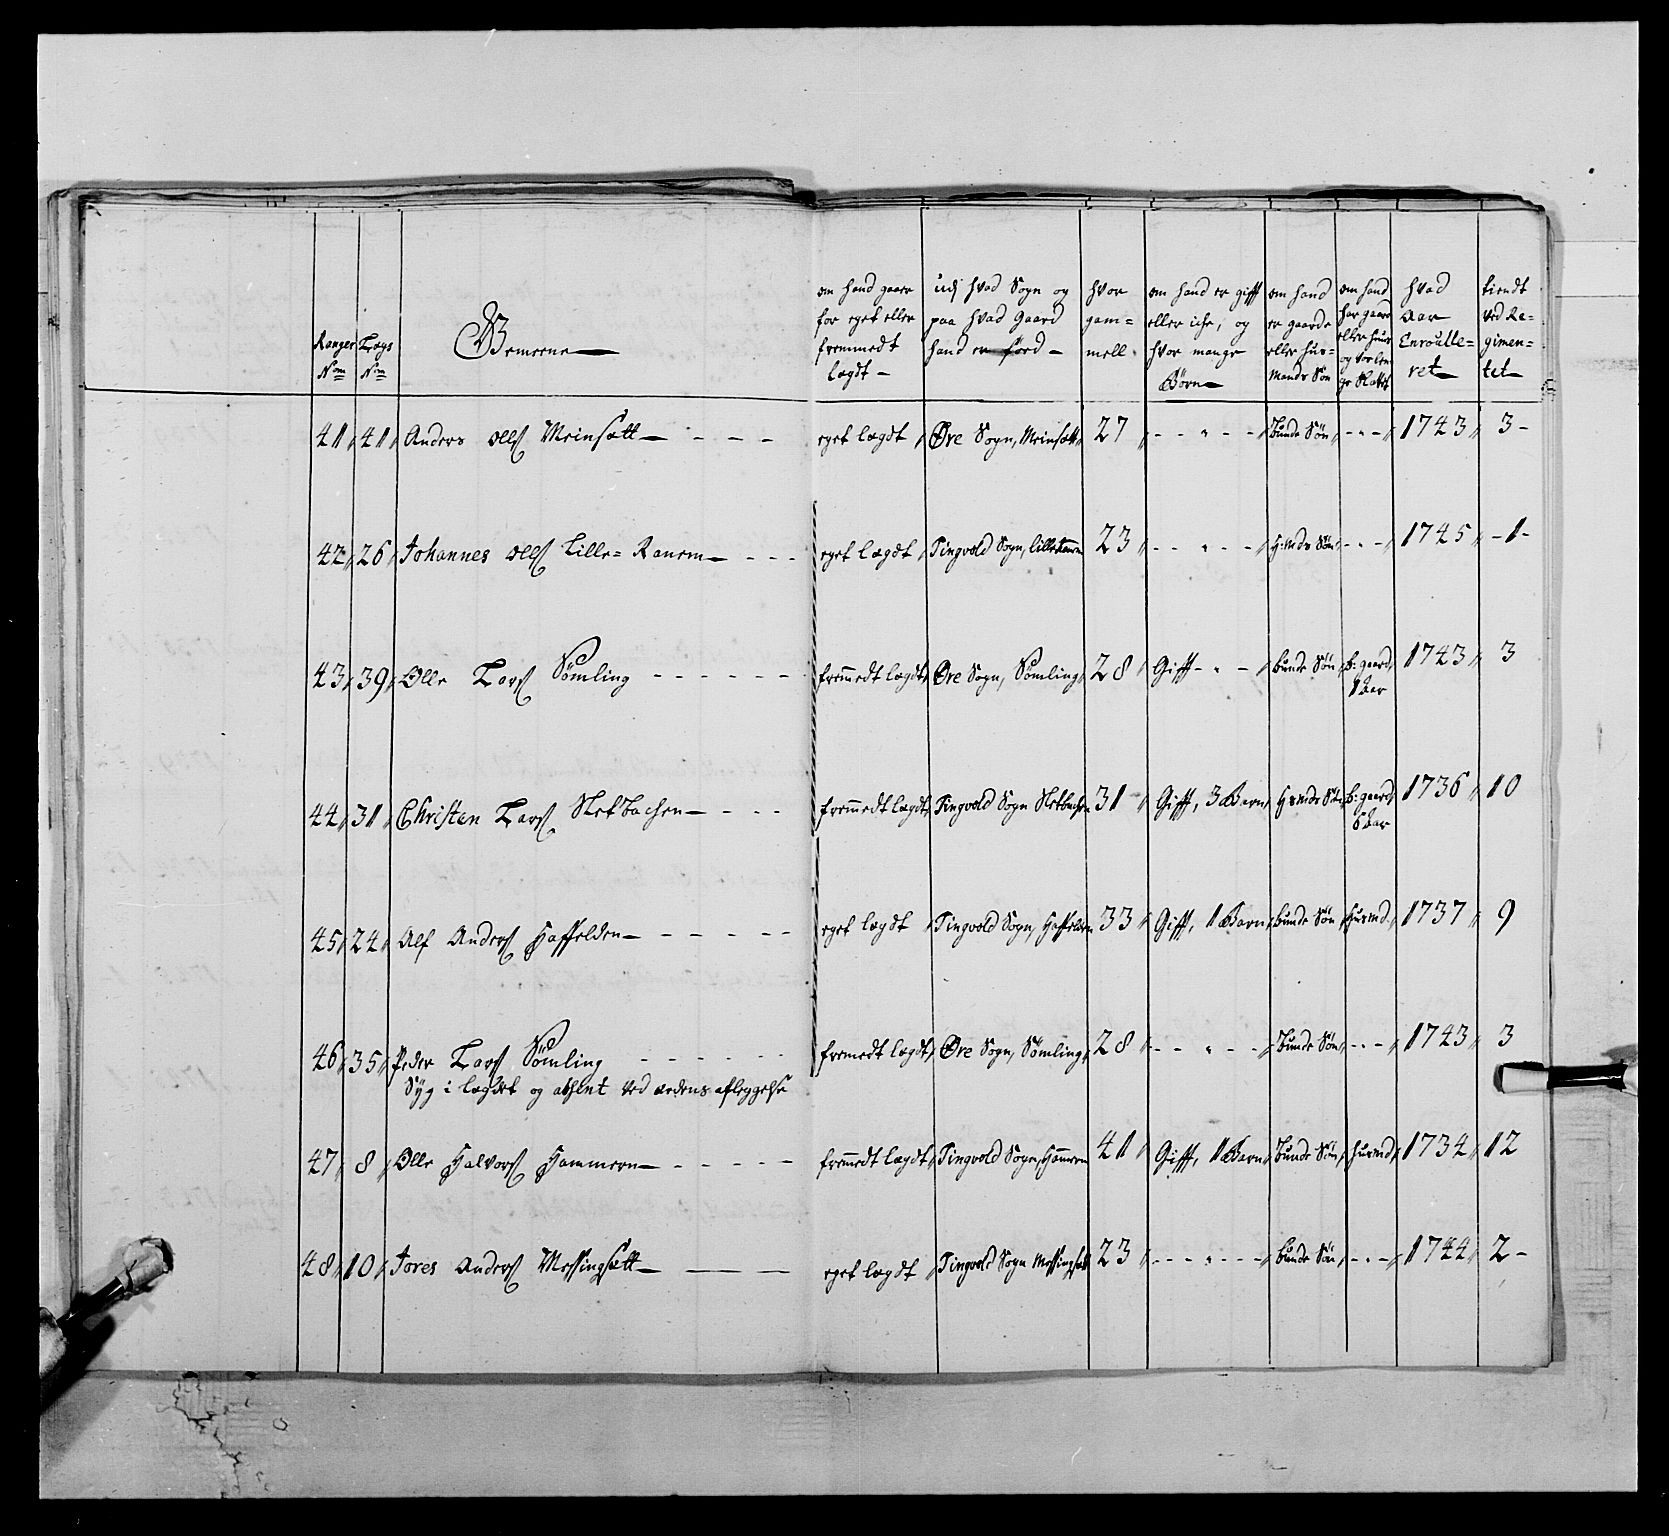 Ranger Nom
Lægs Nom
Gemeene
om hand gaaer for eget eller fremmedt lægdt
udj hvad Sogn og paa hvad Gaard hand er föed
hvor gam=mell
om hand er gifft eller iche, og hvor mange Børn
om hand er gaards eller huus=mands Søn
om hand har gaard eller huus og vor lenge
hvad Aar Enroulle=ret
tiendt ved Re=gimen=tet
41 41 Anders Olls Meinsætt eget lægdt Øre Sogn, Meinsætt 27 Bunde Søn 1743 3
42 26 Johannes Olls Lille=Ranem eget lægdt Tingvold Sogn, lilleRanem 23 H:mds Søn 1745 1
43 39 Olle Lars Sømling fremmedt lægdt Øre Sogn, Sømling 28 Gifft bunde Søn b: gaard 1 Aar 1743 3
44 31 Christen Lars Sletbachen fremmedt lægdt Tingvold Sogn Sletbachen 31 Gifft, 3 Barn H:mds Søn b: gaard 6 Aar 1736 10
45 24 Alf Anders Haffelden eget lægdt Tingvold Sogn, Haffelden 33 Gifft, 1 Barn bunde Søn Husmd 1737 9
46 35 Peder Lars Sømling fremedt lægdt Øre Sogn, Sømling 28 Bunde Søn 1743 3
Syg i lægdet og absent ved aedens aflæggelse
47 8 Olle Halvors Hammern fremmedt lægdt Tingvold Sogn, Hammern 41 Gifft, 1 Barn Bunde Søn husmd 1734 12
48 10 Tores Anders Messingsætt eget lægdt Tingvold Sogn Messingsætt 23 Bunde Søn 1744 2